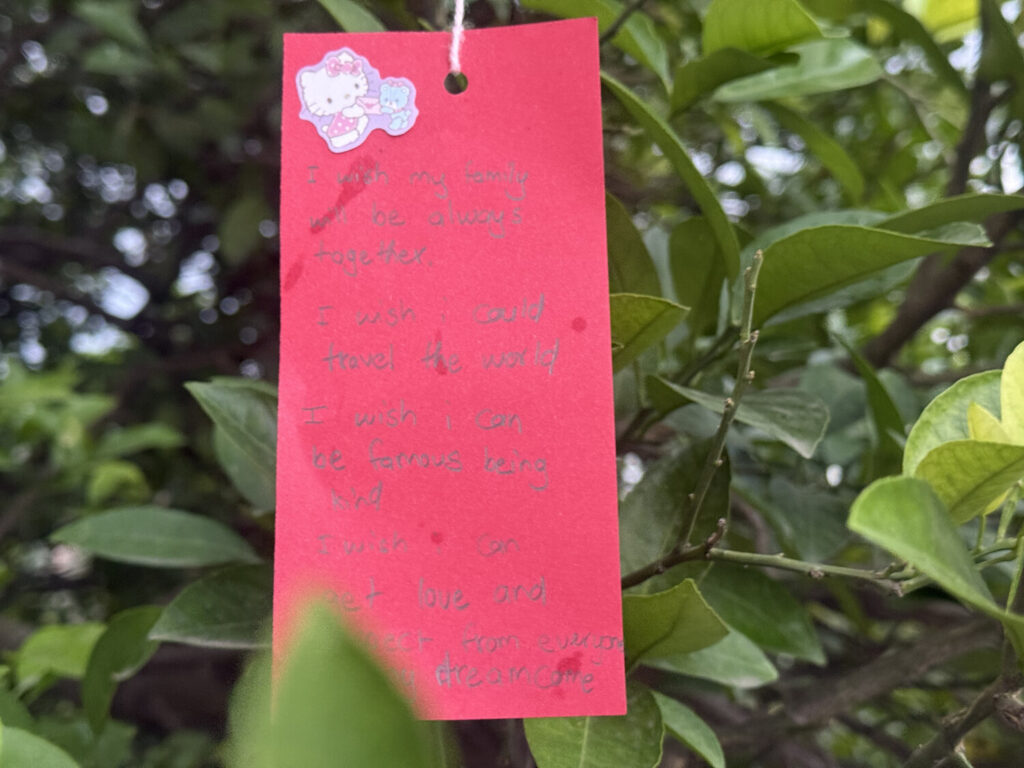 I wish my family
will be always
together.
I wish i could
travel the world
I wish i can
be famous being
kind
I wish i can
get love and
from everyone
dream come